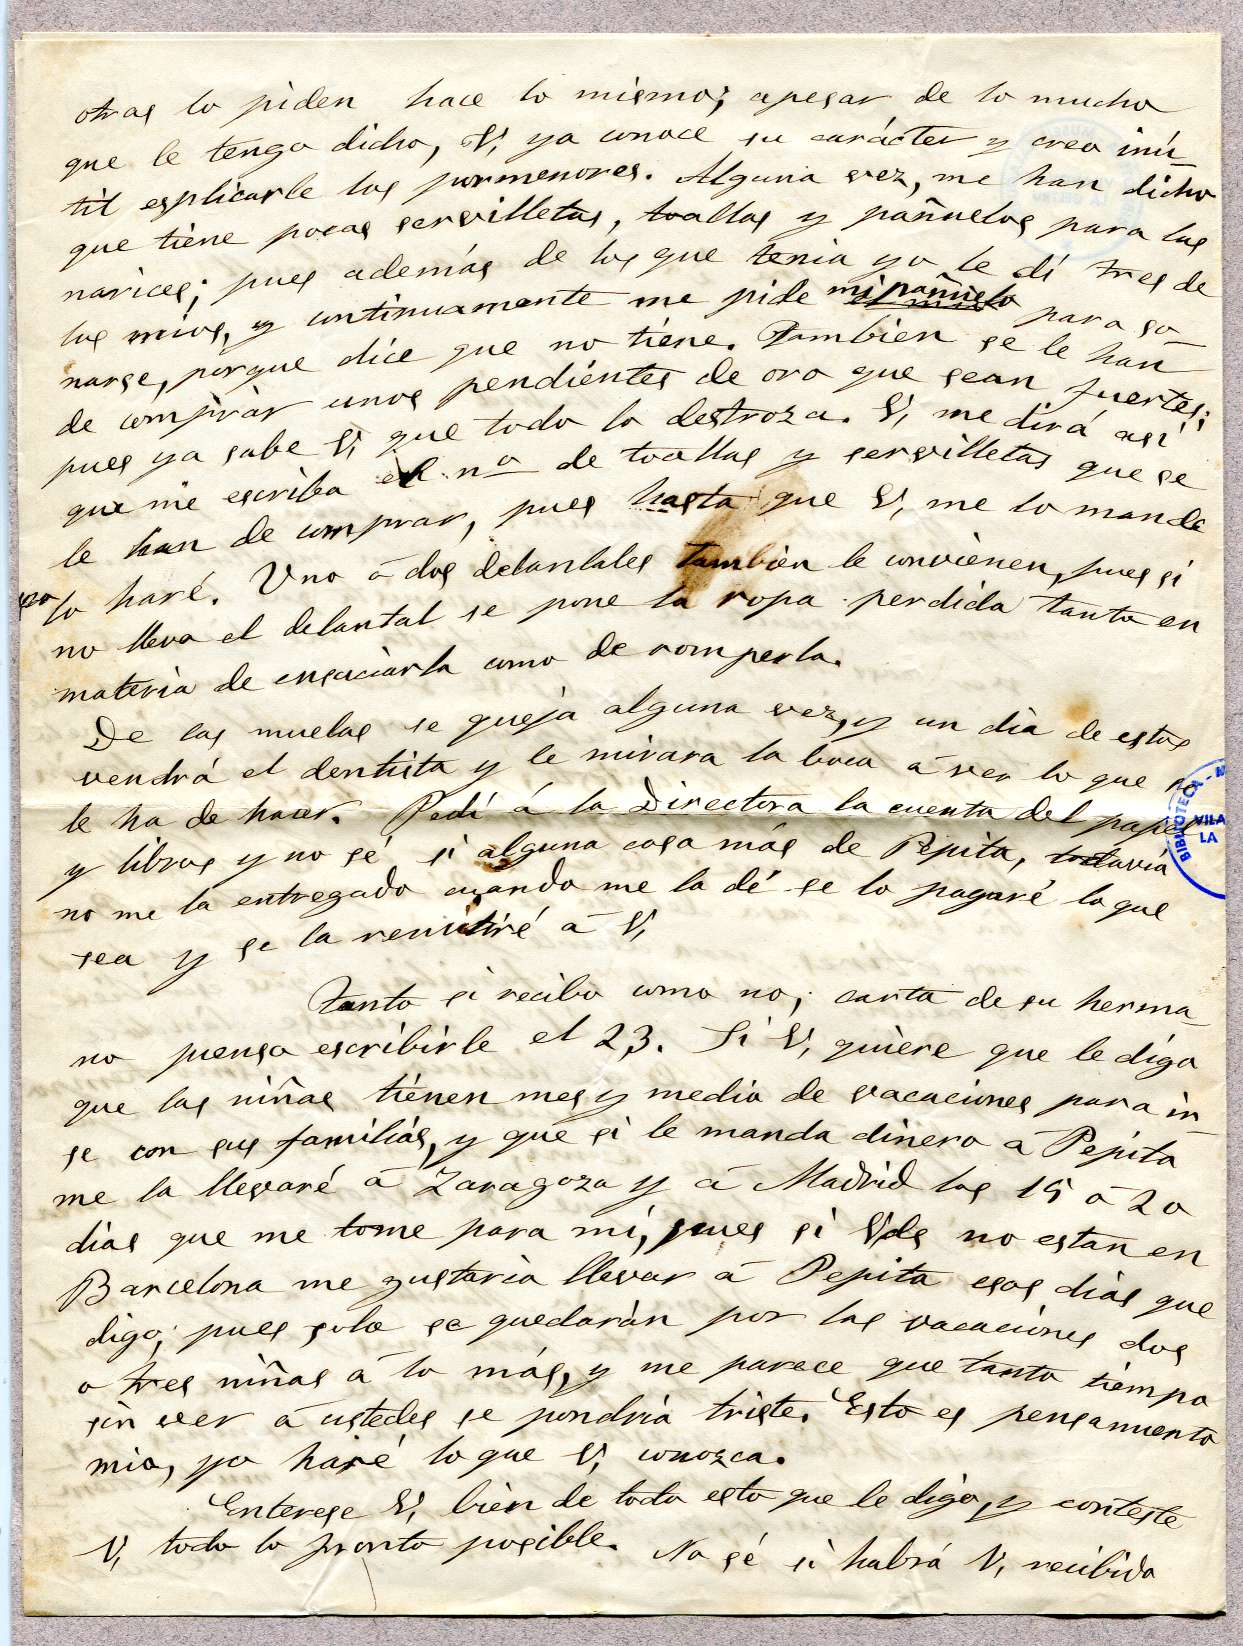 otras lo piden hace lo mismo; apesar de lo mucho
que le tengo dicho, V, ya conoce su carácter y creo inú-
til esplicarle los pormenores. Alguna vez, me han dicho
que tiene pocas servilletas, toallas y pañuelos para las
narices; pues además de los que tenia yo le dí tres de
los mios, y continuamente me pide mi pañuelo para so-
narse, porque dice que no tiene. Tambien se le han
de comprar unos pendientes de oro que sean fuertes;
pues ya sabe V, que todo lo destroza. V, me dirá así
que me escriba el nº de toallas y servilletas que se
le han de comprar, pues hasta que V, me lo mande
no lo haré. Uno ó dos delantales tambien le convienen, pues si
no lleva el delantal se pone la ropa perdida tanto en
materia de ensuciarla como de romperla.
De las muelas se queja alguna vez, y un dia de estos
vendrá el dentista y le mirara la boca á ver lo que se
le ha de hacer. Pedí á la Directora la cuenta del papel
y libros y no sé si alguna cosa más de Pepita, todavia
no me la entregado cuando me la dé se lo pagaré lo que
sea y se la remitiré á V,
Tanto si recibo como no, carta de su herma-
no pienso escribirle el 23. Si V, quiere que le diga
que las niñas tienen mes y medio de vacaciones para ir-
se con sus familias, y que si le manda dinero á Pepita
me la llevaré á Zaragoza y á Madrid los 15 ó 20
dias que me tome para mi, pues si Vds no estan en
Barcelona me gustaria llevar á Pepita esos dias que
digo; pues solo se quedarán por las vacaciones dos
o tres niñas á lo más, y me parece que tanto tiempo
sin ver á ustedes se pondria triste. Esto es pensamiento
mio, yo haré lo que V, conozca.
Enterese V, bien de todo esto que le digo, y conteste
V, todo lo pronto posible. No sé si habrá V, recibido
BIBLIOTECA - M
VILA
LA